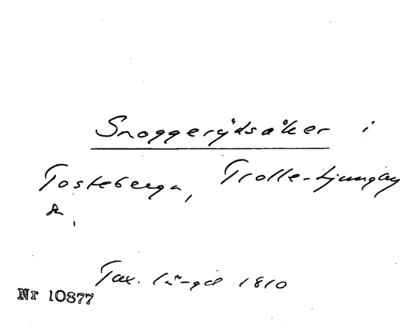 Snoggerydsåker i
Tosteberga, Trolle-Ljungby
A.
Tax. längd 1810
Nr 10877